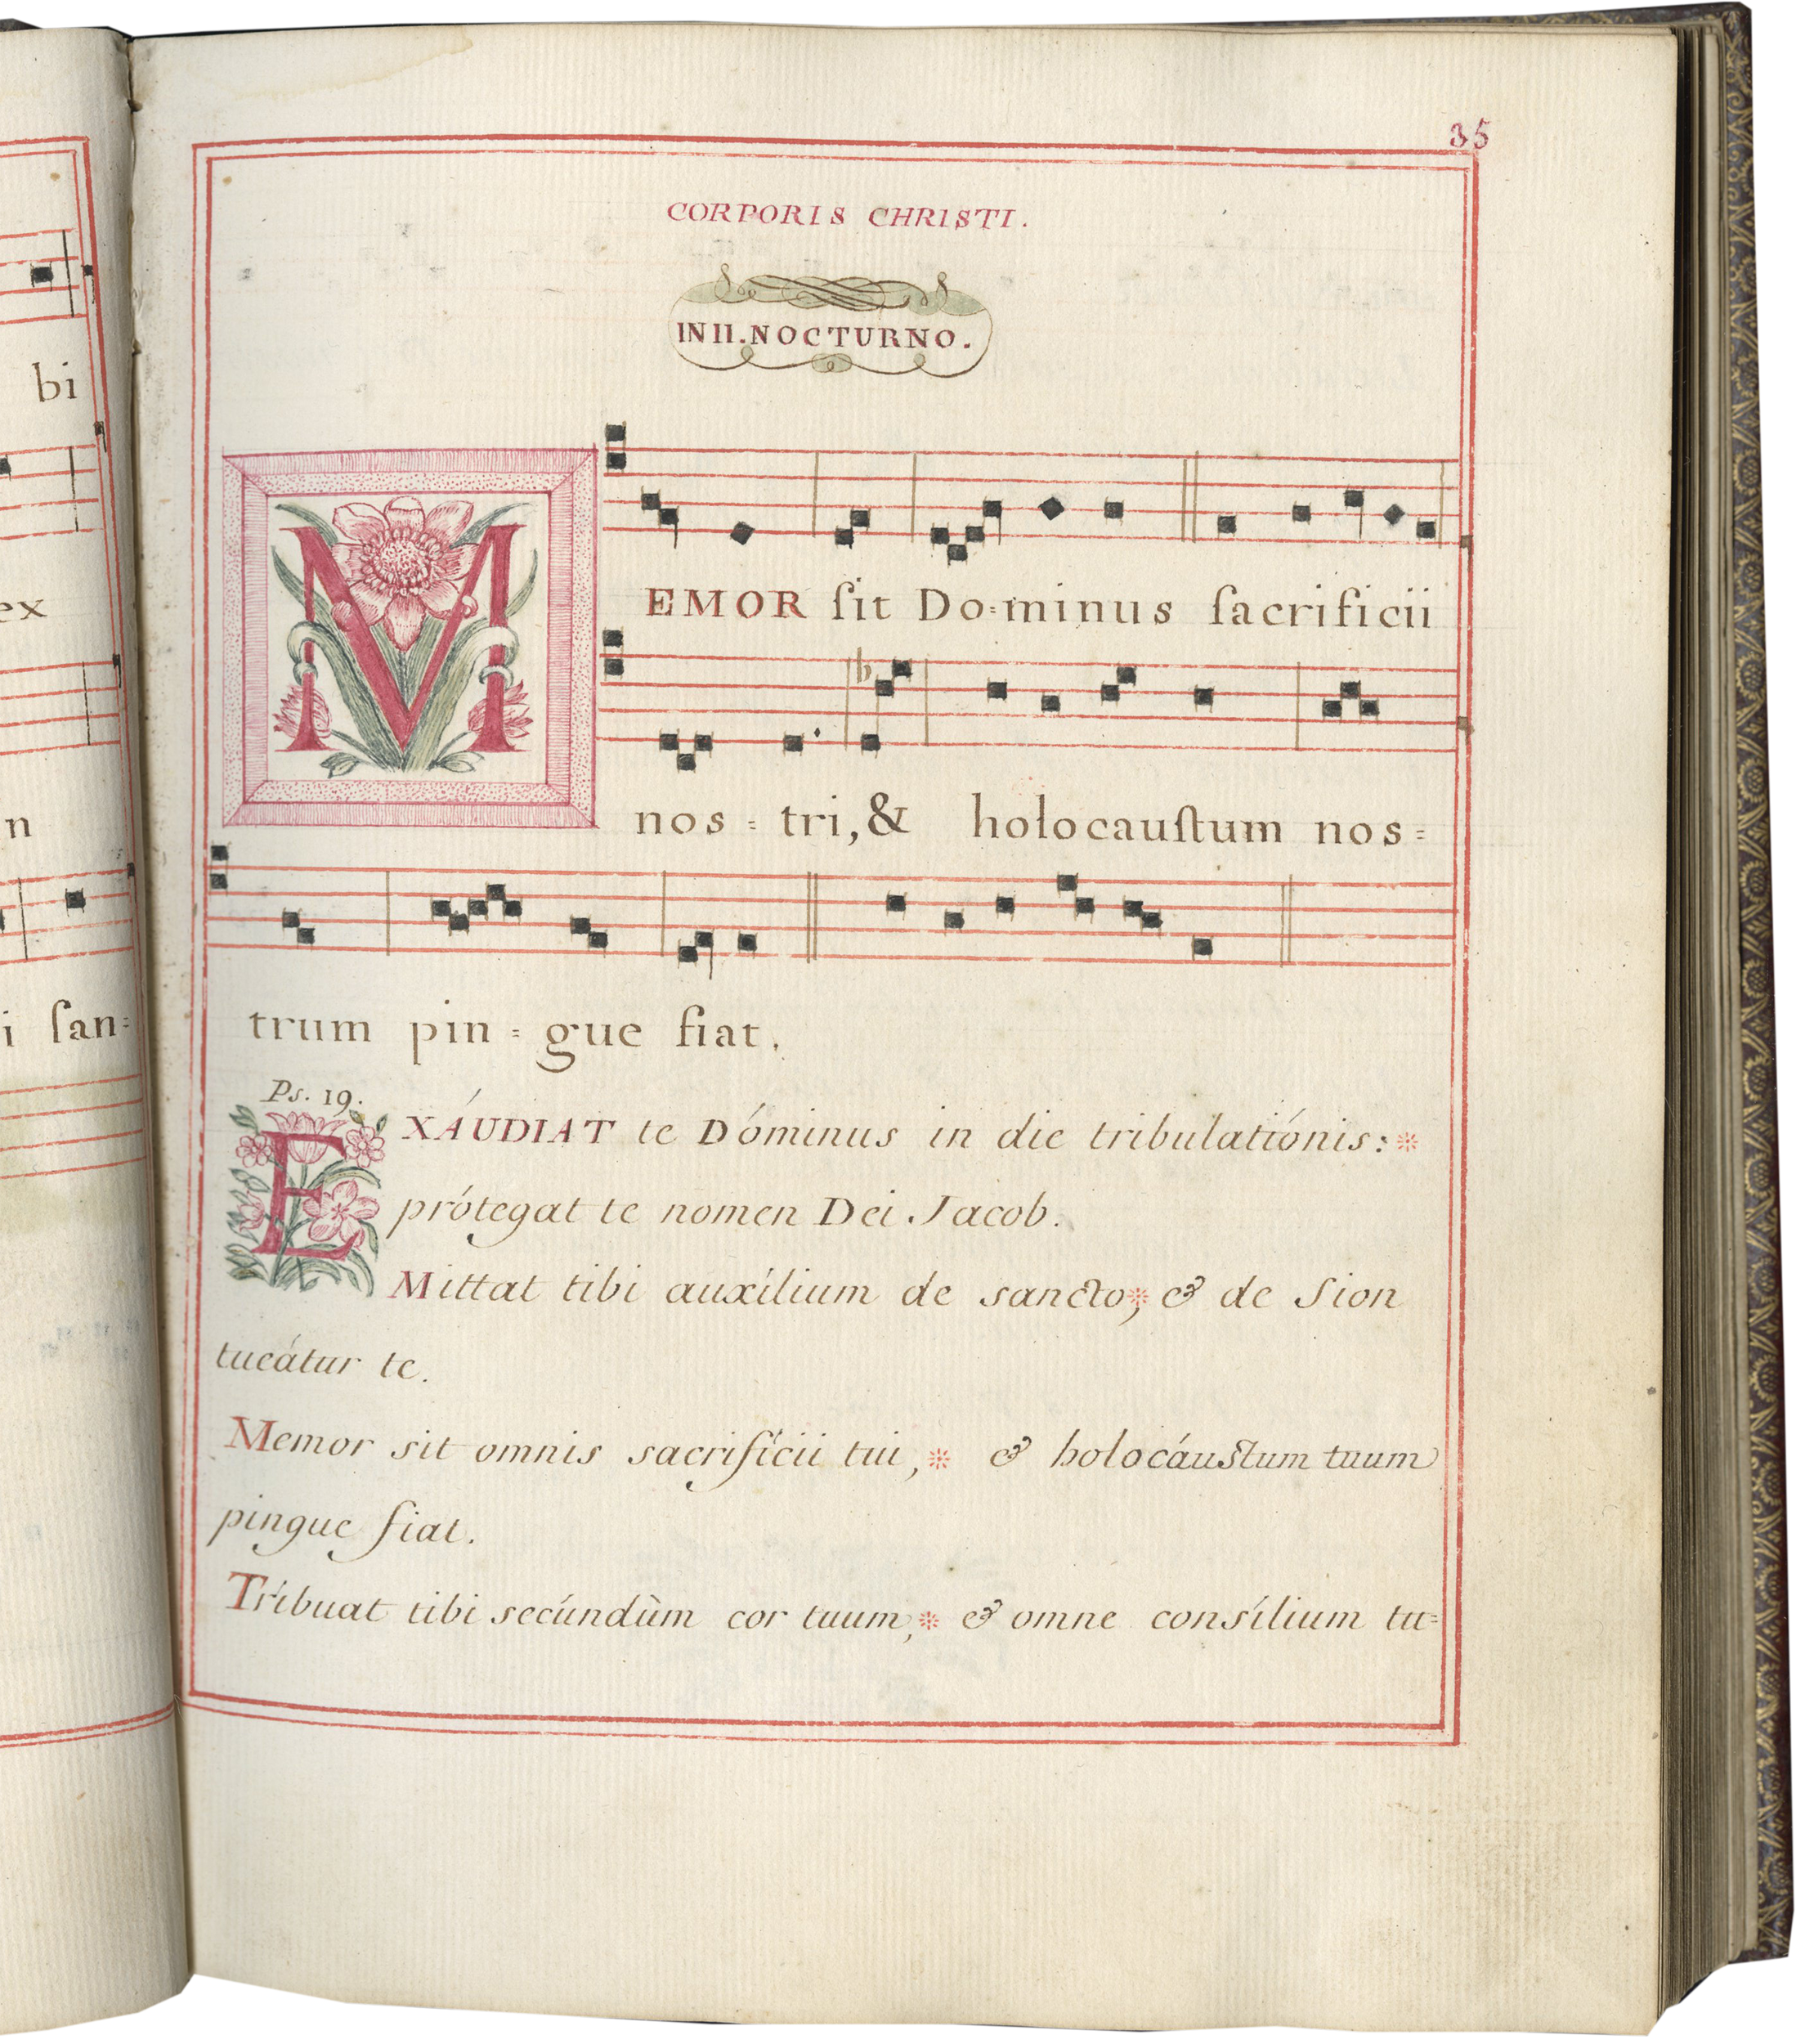 bi
ex
n
i ſan=
35
CORPORIS CHRISTI.
IN II. NOCTURNO.
MEMOR ſit Do=minus ſacrificii
nos = tri, & holocauſtum nos=
trum pin = gue fiat.
Ps. 19.
EXÁUDIAT te Dóminus in die tribulatiónis: *
prótegat te nomen Dei Jacob.
Mittat tibi auxílium de sancto, * & de Sion
tueátur te.
Memor sit omnis sacrifícii tui, * & holocáustum tuum
pingue fiat.
Tríbuat tibi secúndùm cor tuum, * & omne consílium tu=